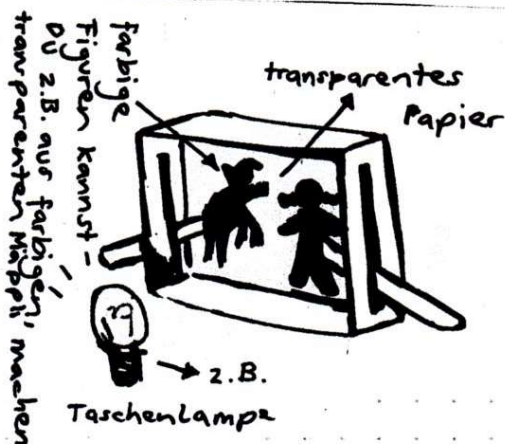 farbige
Figuren kannst
Du z.B. aus farbigen,
transparenten Mäppli machen
transparentes
Papier
z.B.
Taschenlampe